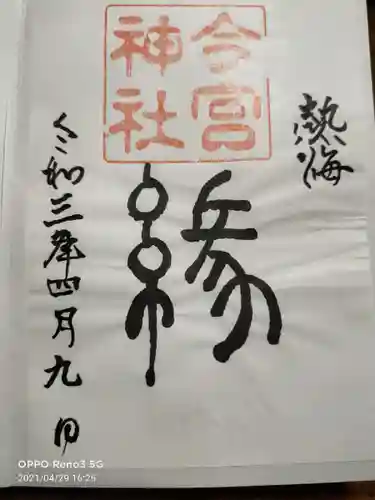 熱海
今宮
神社
縁
令和三年四月九日
OPPO Reno3 5G
2021/04/29 16:26